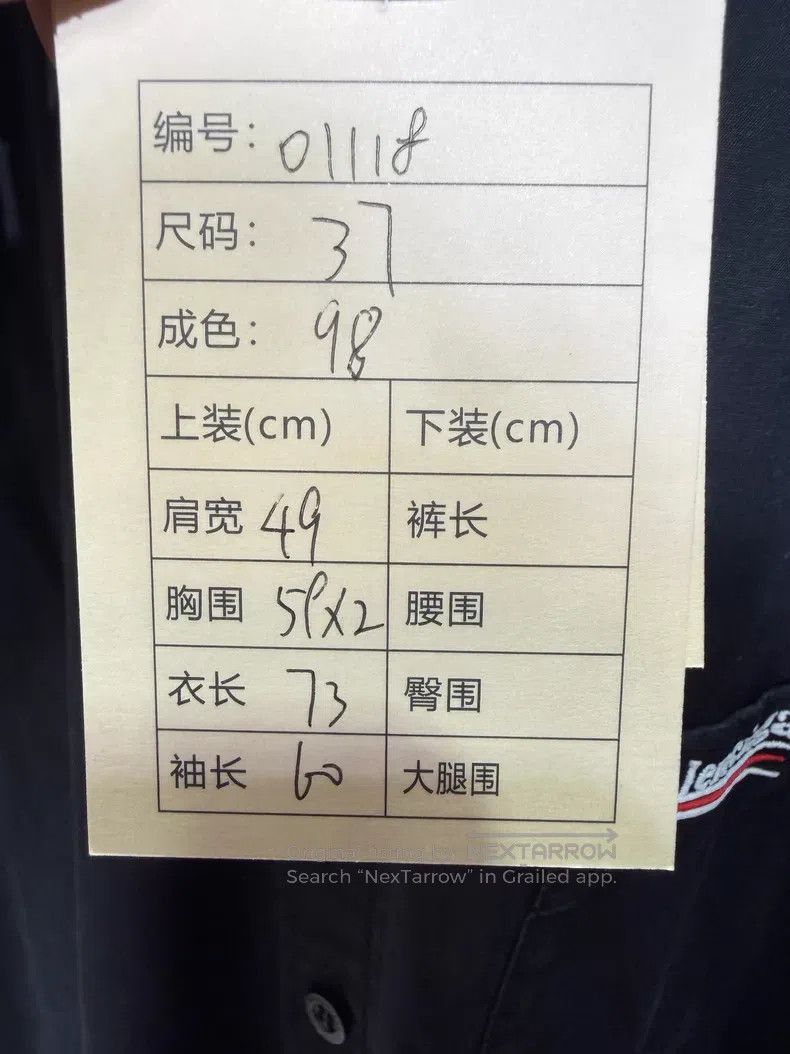 编号：01118
尺码：37
成色：98
上装(cm) 下装(cm)
肩宽 49 裤长
胸围 59x2 腰围
衣长 73 臀围
袖长 60 大腿围
NEXTARROW
Search “NexTarrow” in Grailed app.